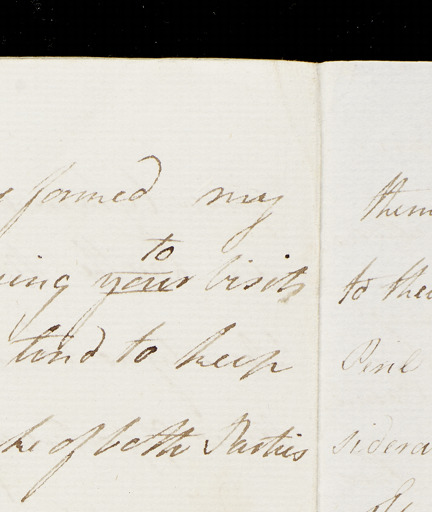 formed my
to
ing your visits
tend to keep
ke of both Parties
them
to the
Peril
sidera